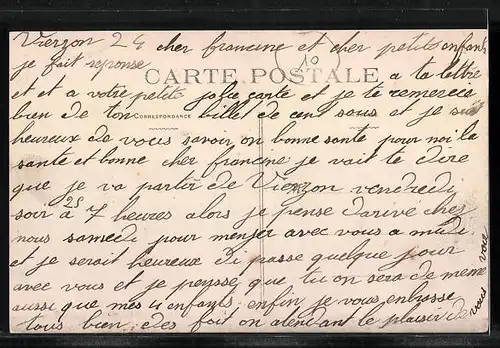 Vierzon 24 cher francine et cher petits enfants
je fait reponse
10
CARTE POSTALE
a ta lettre
et et a votre petits jolie carte et je te remerecs
CORRESPONDANCE
bien de ton billet de cent sous et je suis
heureux de vous savoir on bonne santé pour noi la
santé et bonne cher francine je vait te dire
que je va partir de Vierzon vendredi
25
soir a 7 heures alors je pense darive ches
nous samedi pour menger avec vous a midi
et je serait heureux du passe quelque jour
avec vous et je peysse que tu on sera de meme
aussi que mes 4 enfants enfin je vous enbrasse
tous bien des foit on atendant le plaisir de
vous voir